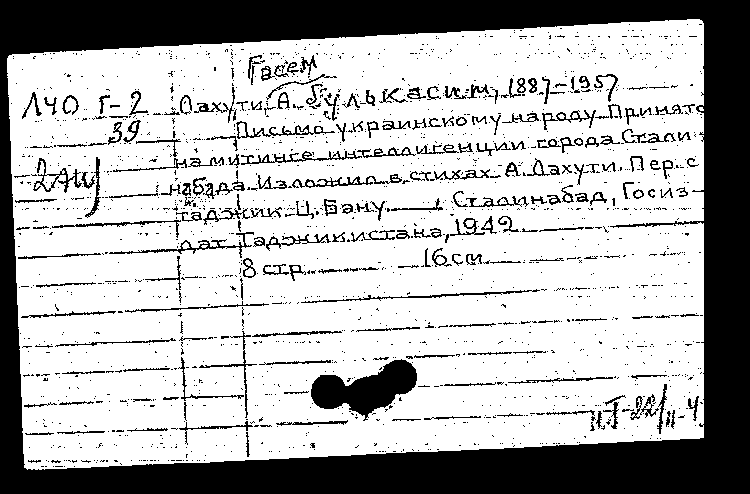 Гасем
ЛЧО Г-2 Лахути, А. Булькасим, 1887-1957
39 Письмо украинскому народу. Принято
на митинге интеллигенции города Стали
2 набада. Изложил в стихах А. Лахути. Пер. с
таджик. Ц. Бану. , Сталинабад, Госиз-
дат Таджикистана, 1942.
8 стр. 16 см.